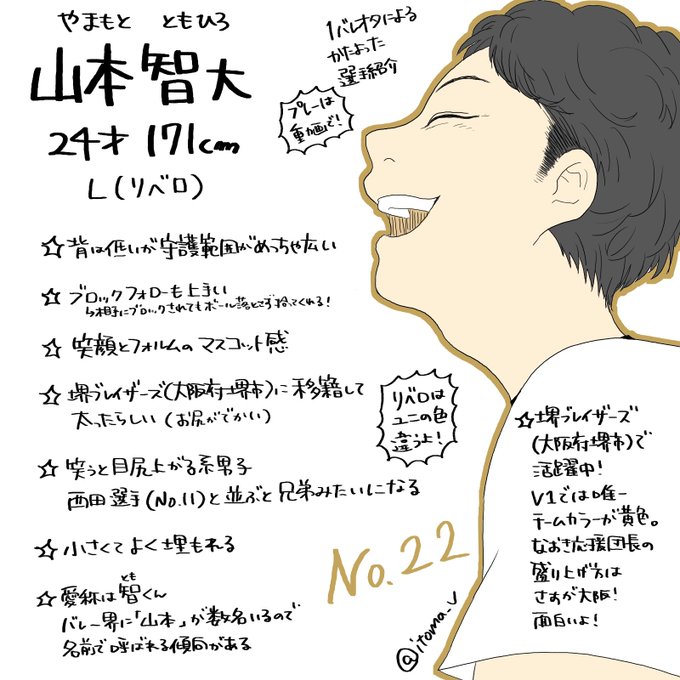 やまもと ともひろ
山本智大
24才 171cm
L(リベロ)
1バレオタによる
かたよった
選手紹介
プレーは
動画で!
☆背は低いが守護範囲がめっちゃ広い
☆ブロックフォローも上手い
↳相手にブロックされてもボール落とさず拾ってくれる!
☆笑顔とフォルムのマスコット感
☆堺ブレイザーズ(大阪府堺市)に移籍して
太ったらしい(お尻がでかい)
リベロは
ユニの色
違うよ!
☆笑うと目尻上がる系男子
西田選手(No.11)と並ぶと兄弟みたいになる
☆小さくてよく埋もれる
☆愛称は智くん
とも
バレー界に「山本」が数名いるので
名前で呼ばれる傾向がある
No.22
☆堺ブレイザーズ
(大阪府堺市)で
活躍中!
V1では唯一
チームカラーが黄色。
なおき応援団長の
盛り上げ方は
さすが大阪!
面白いよ!
@itoma_v